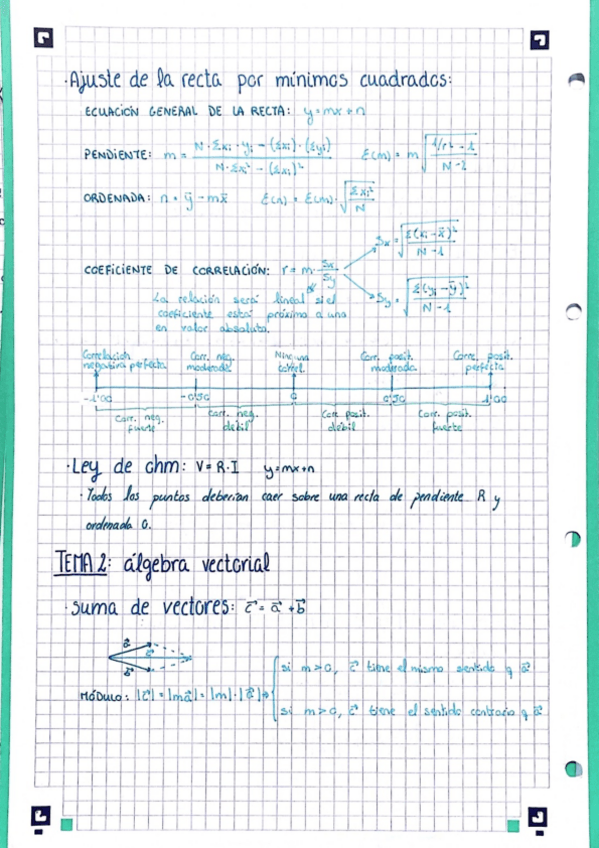 ·Ajuste de la recta por mínimos cuadrados:
ECUACIÓN GENERAL DE LA RECTA: y=mx+n
PENDIENTE: m = (N·Σxi·yi − (Σxi)·(Σyi)) / (N·Σxi² − (Σxi)²) ε(m) = m √((1/r² − 1) / (N−2))
ORDENADA: n = ȳ − mx̄ ε(n) = ε(m)·√(Σxi² / N)
Sx = √(Σ(xi − x̄)² / (N−1))
COEFICIENTE DE CORRELACIÓN: r = m· Sx/Sy
Sy = √(Σ(yi − ȳ)² / (N−1))
La relación será lineal si el
coeficiente está próximo a uno
en valor absoluto.
Correlación negativa perfecta
Corr. neg. moderada
Ninguna correl.
Corr. posit. moderada
Corre. posit. perfecta
-1'00 -0'50 0 0'50 1'00
Corr. neg. fuerte
Corr. neg. débil
Corr posit. débil
Corr. posit. fuerte
·Ley de ohm: V=R·I y=mx+n
·Todos los puntos deberían caer sobre una recta de pendiente R y
ordenada 0.
TEMA 2: álgebra vectorial
·suma de vectores: c⃗ = a⃗ + b⃗
a⃗
c⃗
b⃗
si m>0, c⃗ tiene el mismo sentido q a⃗
MÓDULO: |c⃗| = |ma⃗| = |m|·|a⃗| →
si m>0, c⃗ tiene el sentido contrario q a⃗